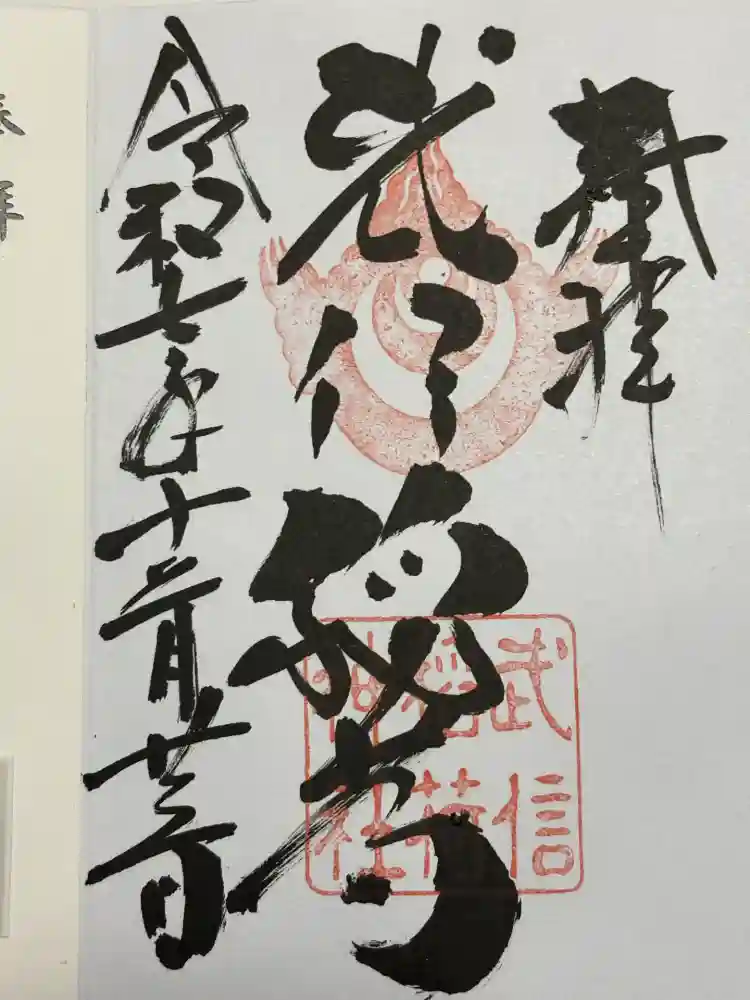 奉拝
武信稲荷
令和七年十二月廿二日
武信
稲荷
神社